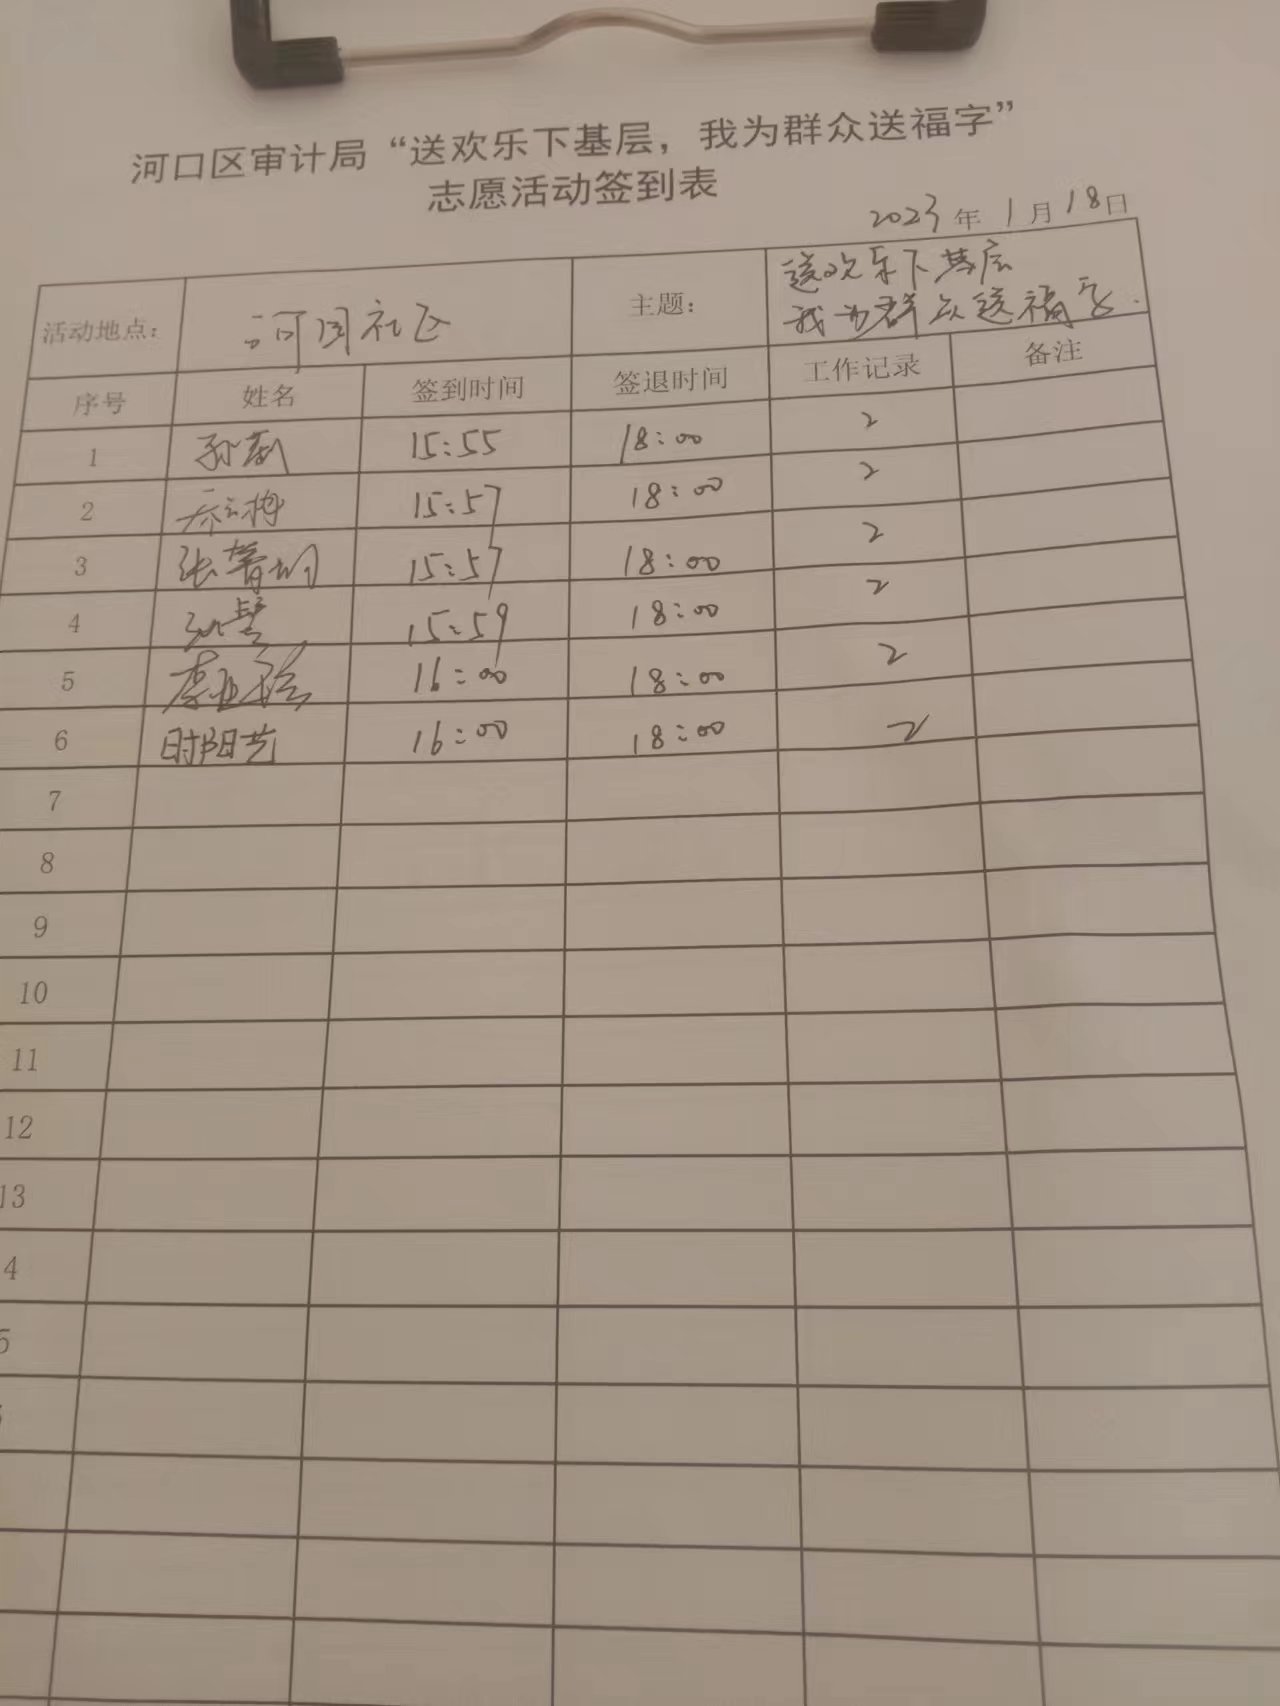 河口区审计局“送欢乐下基层，我为群众送福字”
志愿活动签到表
2023年 1月18日
活动地点： 河园社区 主题： 送欢乐下基层
我为群众送福字.
序号 姓名 签到时间 签退时间 工作记录 备注
1 15:55 18:00 2
2 15:57 18:00 2
3 15:57 18:00 2
4 15:59 18:00 2
5 16:00 18:00 2
6 时阳艺 16:00 18:00 2
7
8
9
10
11
12
13
4
5